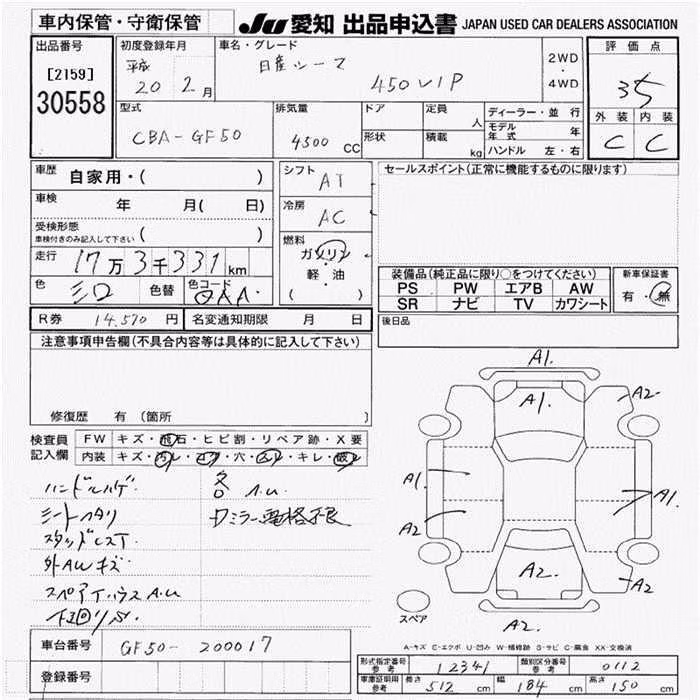 車内保管・守衛保管 JU 愛知 出品申込書 JAPAN USED CAR DEALERS ASSOCIATION
出品番号 初度登録年月 車名・グレード 2WD ・ 4WD 評価点
[2159] 平成 日産シーマ
30558 20 2 月 450 VIP 3.5
型式 排気量 ドア 定員 人 ディーラー・並行 外装 内装
CBA-GF50 4500 CC 形状 積載 kg モデル年式 年 C C
ハンドル 左・右
車歴 自家用・( ) シフト AT セールスポイント(正常に機能するものに限ります)
車検 年 月( 日) 冷房 AC
受検形態 ( )
車検付きのみ記入して下さい
燃料 ガソリン ・ 軽油 ( )
走行 17万3千331km 装備品(純正品に限り○をつけてください) 新車保証書
色 シロ 色替 色コード QAA PS PW エアB AW 有・無
SR ナビ TV カワシート
R券 14,570 円 名変通知期限 月 日 後日品
注意事項申告欄(不具合内容等は具体的に記入して下さい)
修復歴 有(箇所 )
検査員記入欄 FW キズ・飛石・ヒビ割・リペア跡・X要
内装 キズ・汚レ・コゲ・穴・スレ・キレ・破レ
ハンドルハゲ 各 A.U
シートヘタリ
スタッドレスT
外AWキズ
スペアタイヤハウスA.U
A1. A1. A2
A1. A1.
A2 A2. A2
A2.
スペア
A-キズ E-エクボ U-凹み W-補修跡 S-サビ C-腐食 XX-交換済
車台番号 GF50-200017
登録番号
形式指定番号 参考 12341 類別区分番号 参考 0112
車庫証明用 参考 長さ 512 cm 幅 184 cm 高さ 150 cm